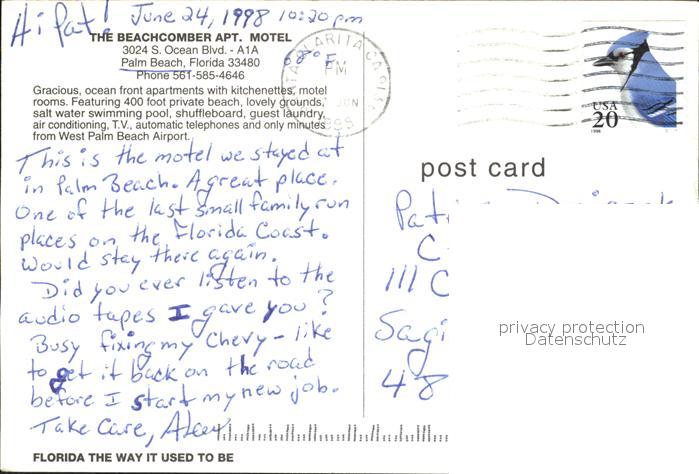 Hi Pat! June 24, 1998 10:20 pm
THE BEACHCOMBER APT. MOTEL
3024 S. Ocean Blvd. - A1A
Palm Beach, Florida 33480
68° F
Phone 561-585-4646
Gracious, ocean front apartments with kitchenettes, motel
rooms. Featuring 400 foot private beach, lovely grounds,
salt water swimming pool, shuffleboard, guest laundry,
air conditioning, T.V., automatic telephones and only minutes
from West Palm Beach Airport.
This is the motel we stayed at
in Palm Beach. A great place.
One of the last small family run
places on the Florida Coast.
Would stay there again.
Did you ever listen to the
audio tapes I gave you?
Busy fixing my Chevy - like
to get it back on the road
before I start my new job.
Take Care, Alex
FLORIDA THE WAY IT USED TO BE
PM
JUN
USA
20
1996
post card
Pat
C
111 C
Sagi
48
privacy protection
Datenschutz